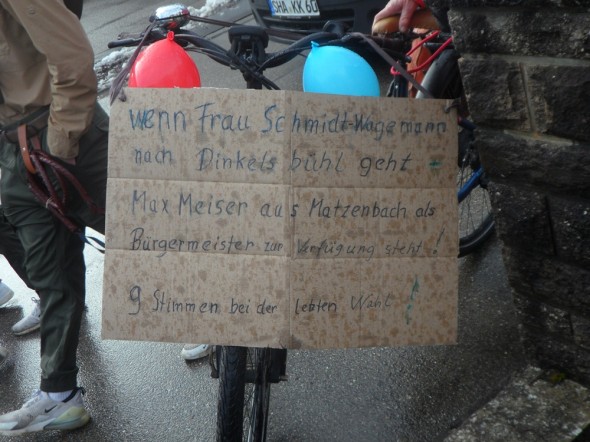 SHA KK 60
wenn Frau Schmidt-Wagemann
nach Dinkelsbühl geht
Max Meiser aus Matzenbach als
Bürgermeister zur Verfügung steht!
9 Stimmen bei der letzten Wahl!